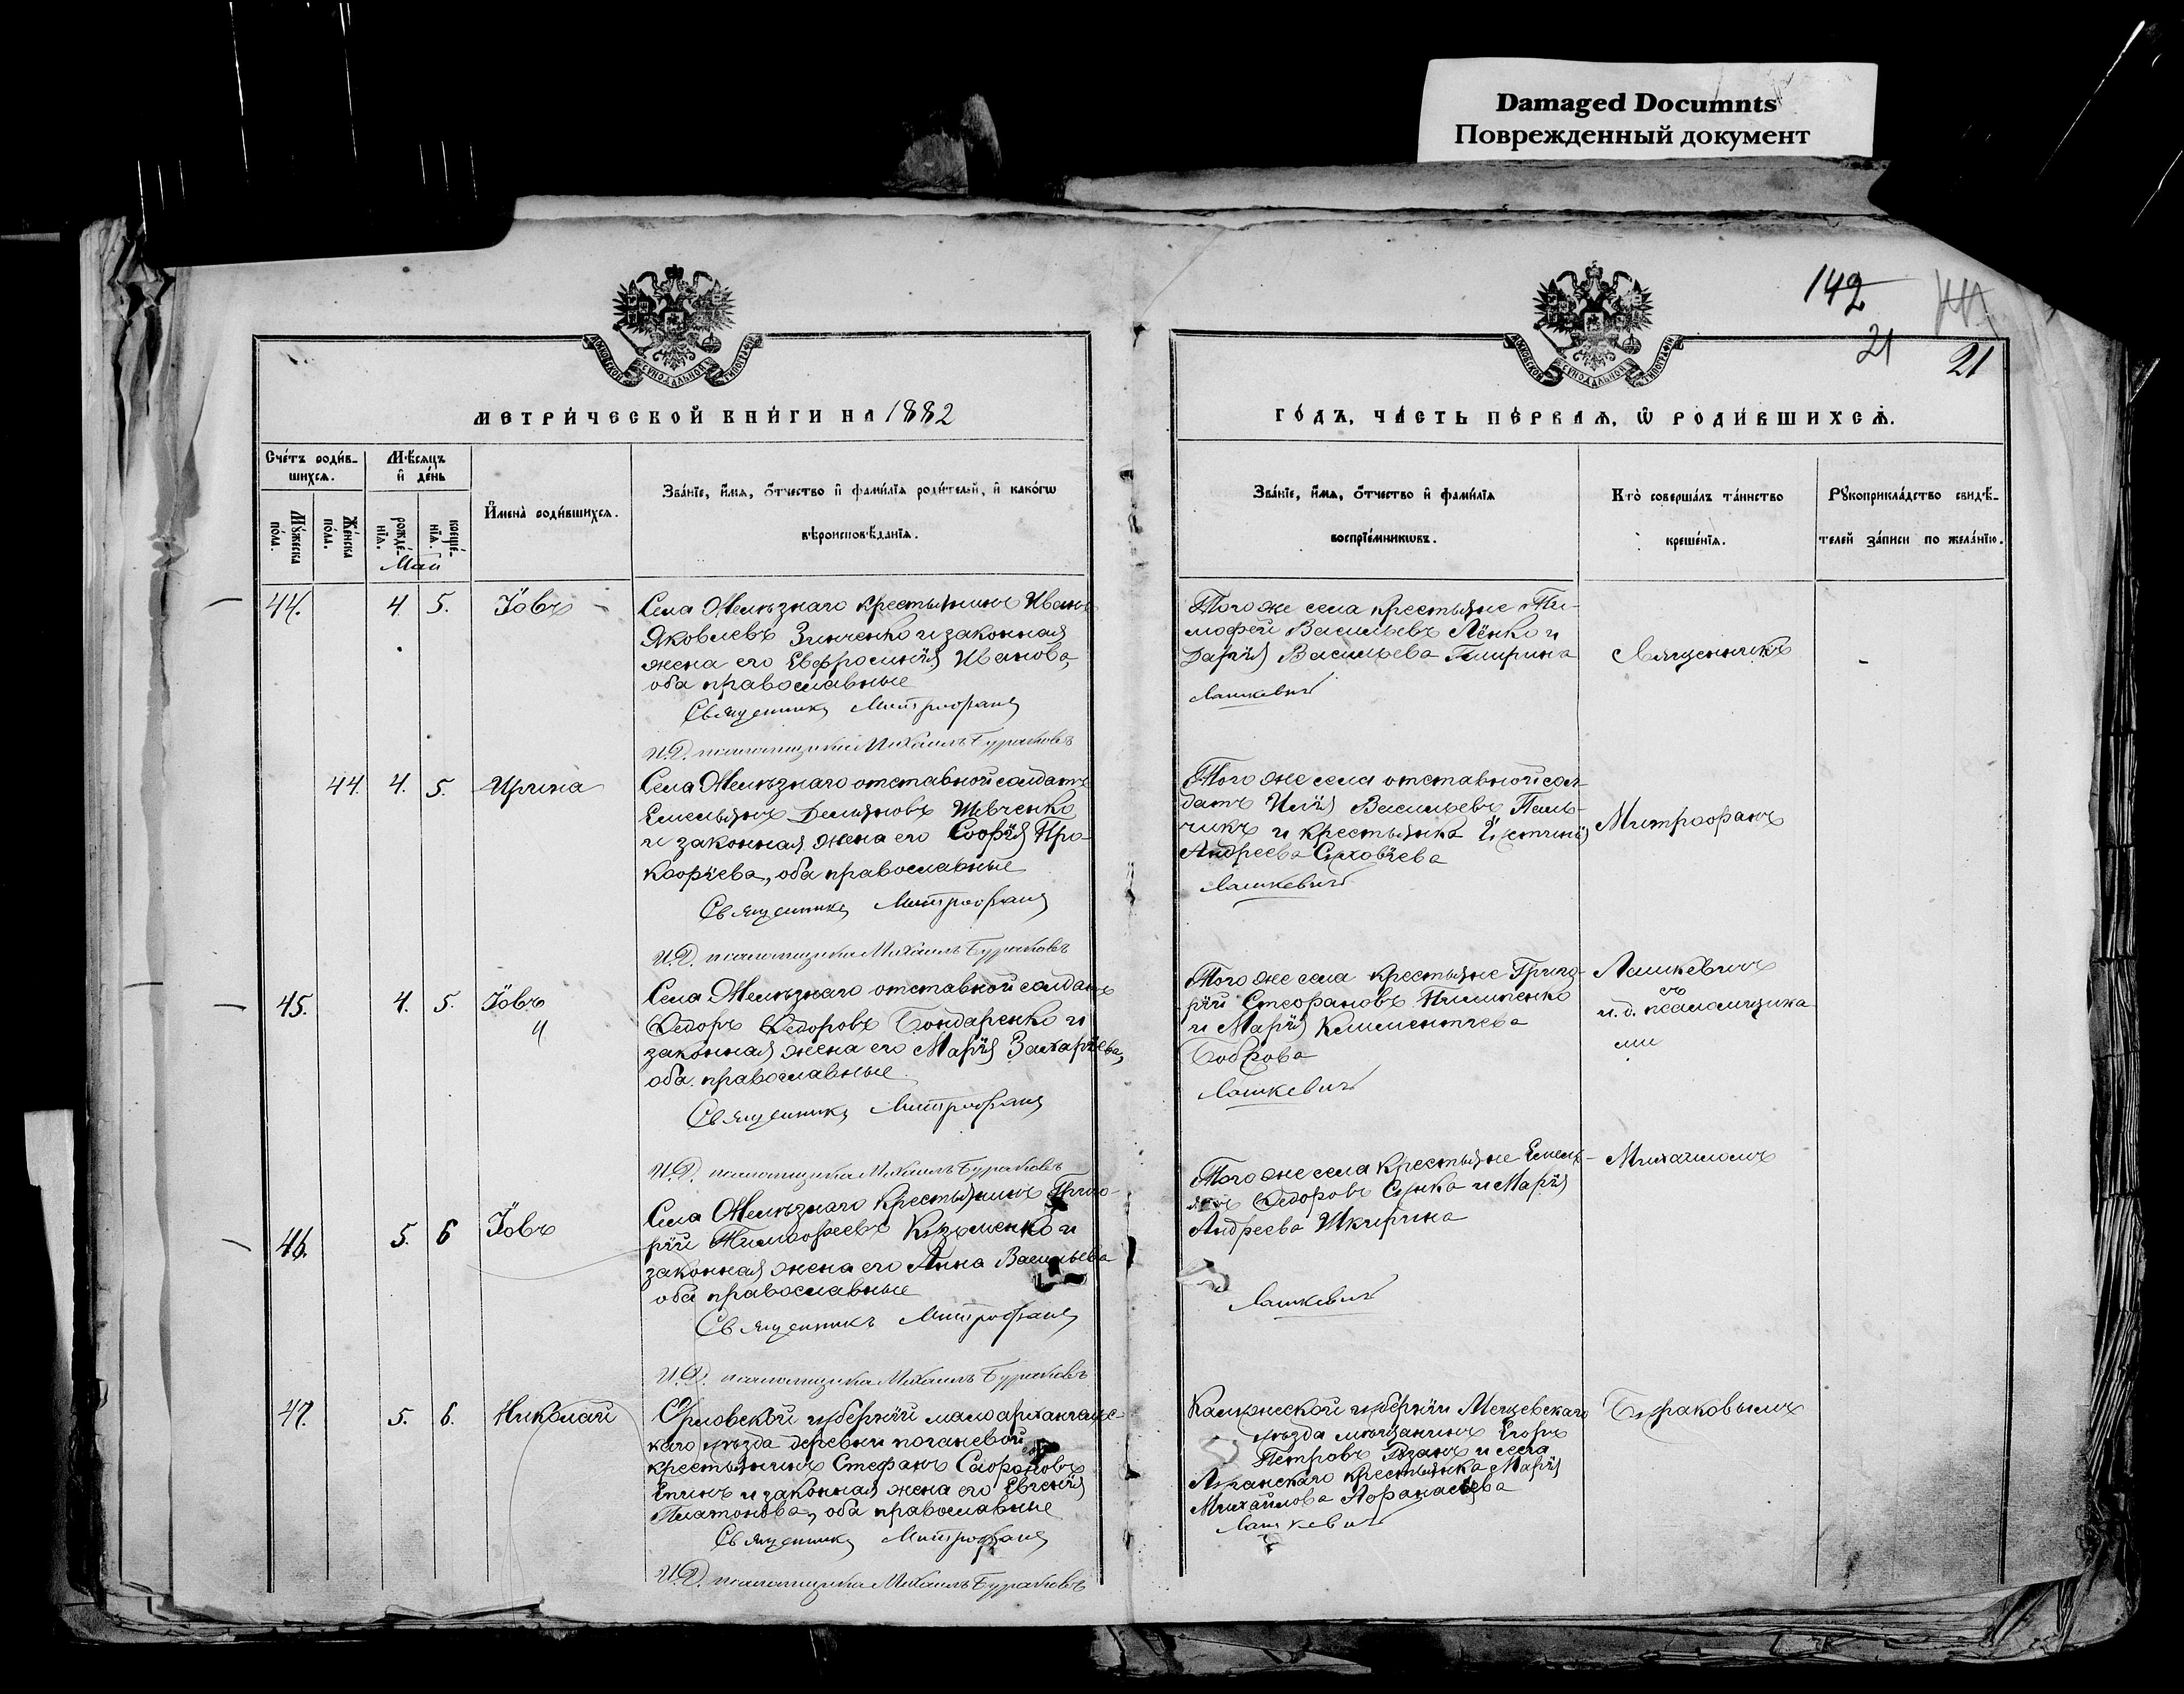 Damaged Documnts
Поврежденный документ
142
21
21
МЕТРИЧЕСКОЙ КНИГИ НА 1882
ГОДЪ, ЧАСТЬ ПЕРВАЯ, Ѡ РОДИВШИХСЯ.
Счетъ родив-
шихся.
Мѣсяцъ
и день
Имена родившихся.
Званіе, имя, отчество и фамилія родителей, и какогѡ
вѣроисповѣданія.
Званіе, имя, отчество и фамилія
воспріемникѡвъ.
Кто совершалъ таинство
крещенія.
Рꙋкоприкладство свидѣ-
телей записи по желанію.
Мꙋжеска
пола.
Женска
пола.
рожде-
нія.
креще-
нія.
Май
44.
4
5.
Іовъ
Села Желѣзнаго крестьянинъ Иванъ
Яковлевъ Зинченко и законная
жена его Евфросинія Иванова,
оба православные
Священникъ Митрофанъ
И.Д. псаломщика Михаилъ Бураковъ
Того же села крестьяне Ти-
мофей Васильевъ Лёнко и
Дарія Васильева
Лашкевичъ
Священникъ
44
4.
5.
Ирина
Села Желѣзнаго отставной солдатъ
Емельянъ Демяновъ Шевченко
и законная жена его Софія Про-
кофіева, оба православные
Священникъ Митрофанъ
И.Д. псаломщика Михаилъ Бураковъ
Того же села отставной сол-
датъ Илія Васильевъ Паль-
чикъ и крестьянка Іустинія
Андреева
Лашкевичъ
Митрофанъ
45.
4.
5.
Іовъ
Села Желѣзнаго отставной солдатъ
Ѳедоръ Ѳедоровъ Бондаренко и
законная жена его Марія Захаріева,
оба православные
Священникъ Митрофанъ
И.Д. псаломщика Михаилъ Бураковъ
Того же села крестьяне Григо-
рій Стефановъ Пилипенко
и Марія Климентіева
Боброва
Лашкевичъ
Лашкевичъ
съ
и. д. псаломщика
ми
46.
5.
6
Іовъ
Села Желѣзнаго крестьянинъ Григо-
рій Тимофеевъ Кузьменко и
законная жена его Анна Васильева
оба православные
Священникъ Митрофанъ
И.Д. псаломщика Михаилъ Бураковъ
Того же села крестьяне Емель-
янъ Ѳедоровъ и Марія
Андреева Шкирина
Лашкевичъ
Михаиломъ
47.
5.
6.
Николай
Орловской губерніи малоархангельс-
каго уѣзда деревни
крестьянинъ Стефанъ Сафоновъ
Епинъ и законная жена его Евгенія
Платонова, оба православные
Священникъ Митрофанъ
И.Д. псаломщика Михаилъ Бураковъ
Калужской губерніи Мещевскаго
уѣзда мѣщанинъ Егоръ
Петровъ и села
Луганскаго крестьянка Марія
Михайлова Афанасьева
Лашкевичъ
Бураковымъ